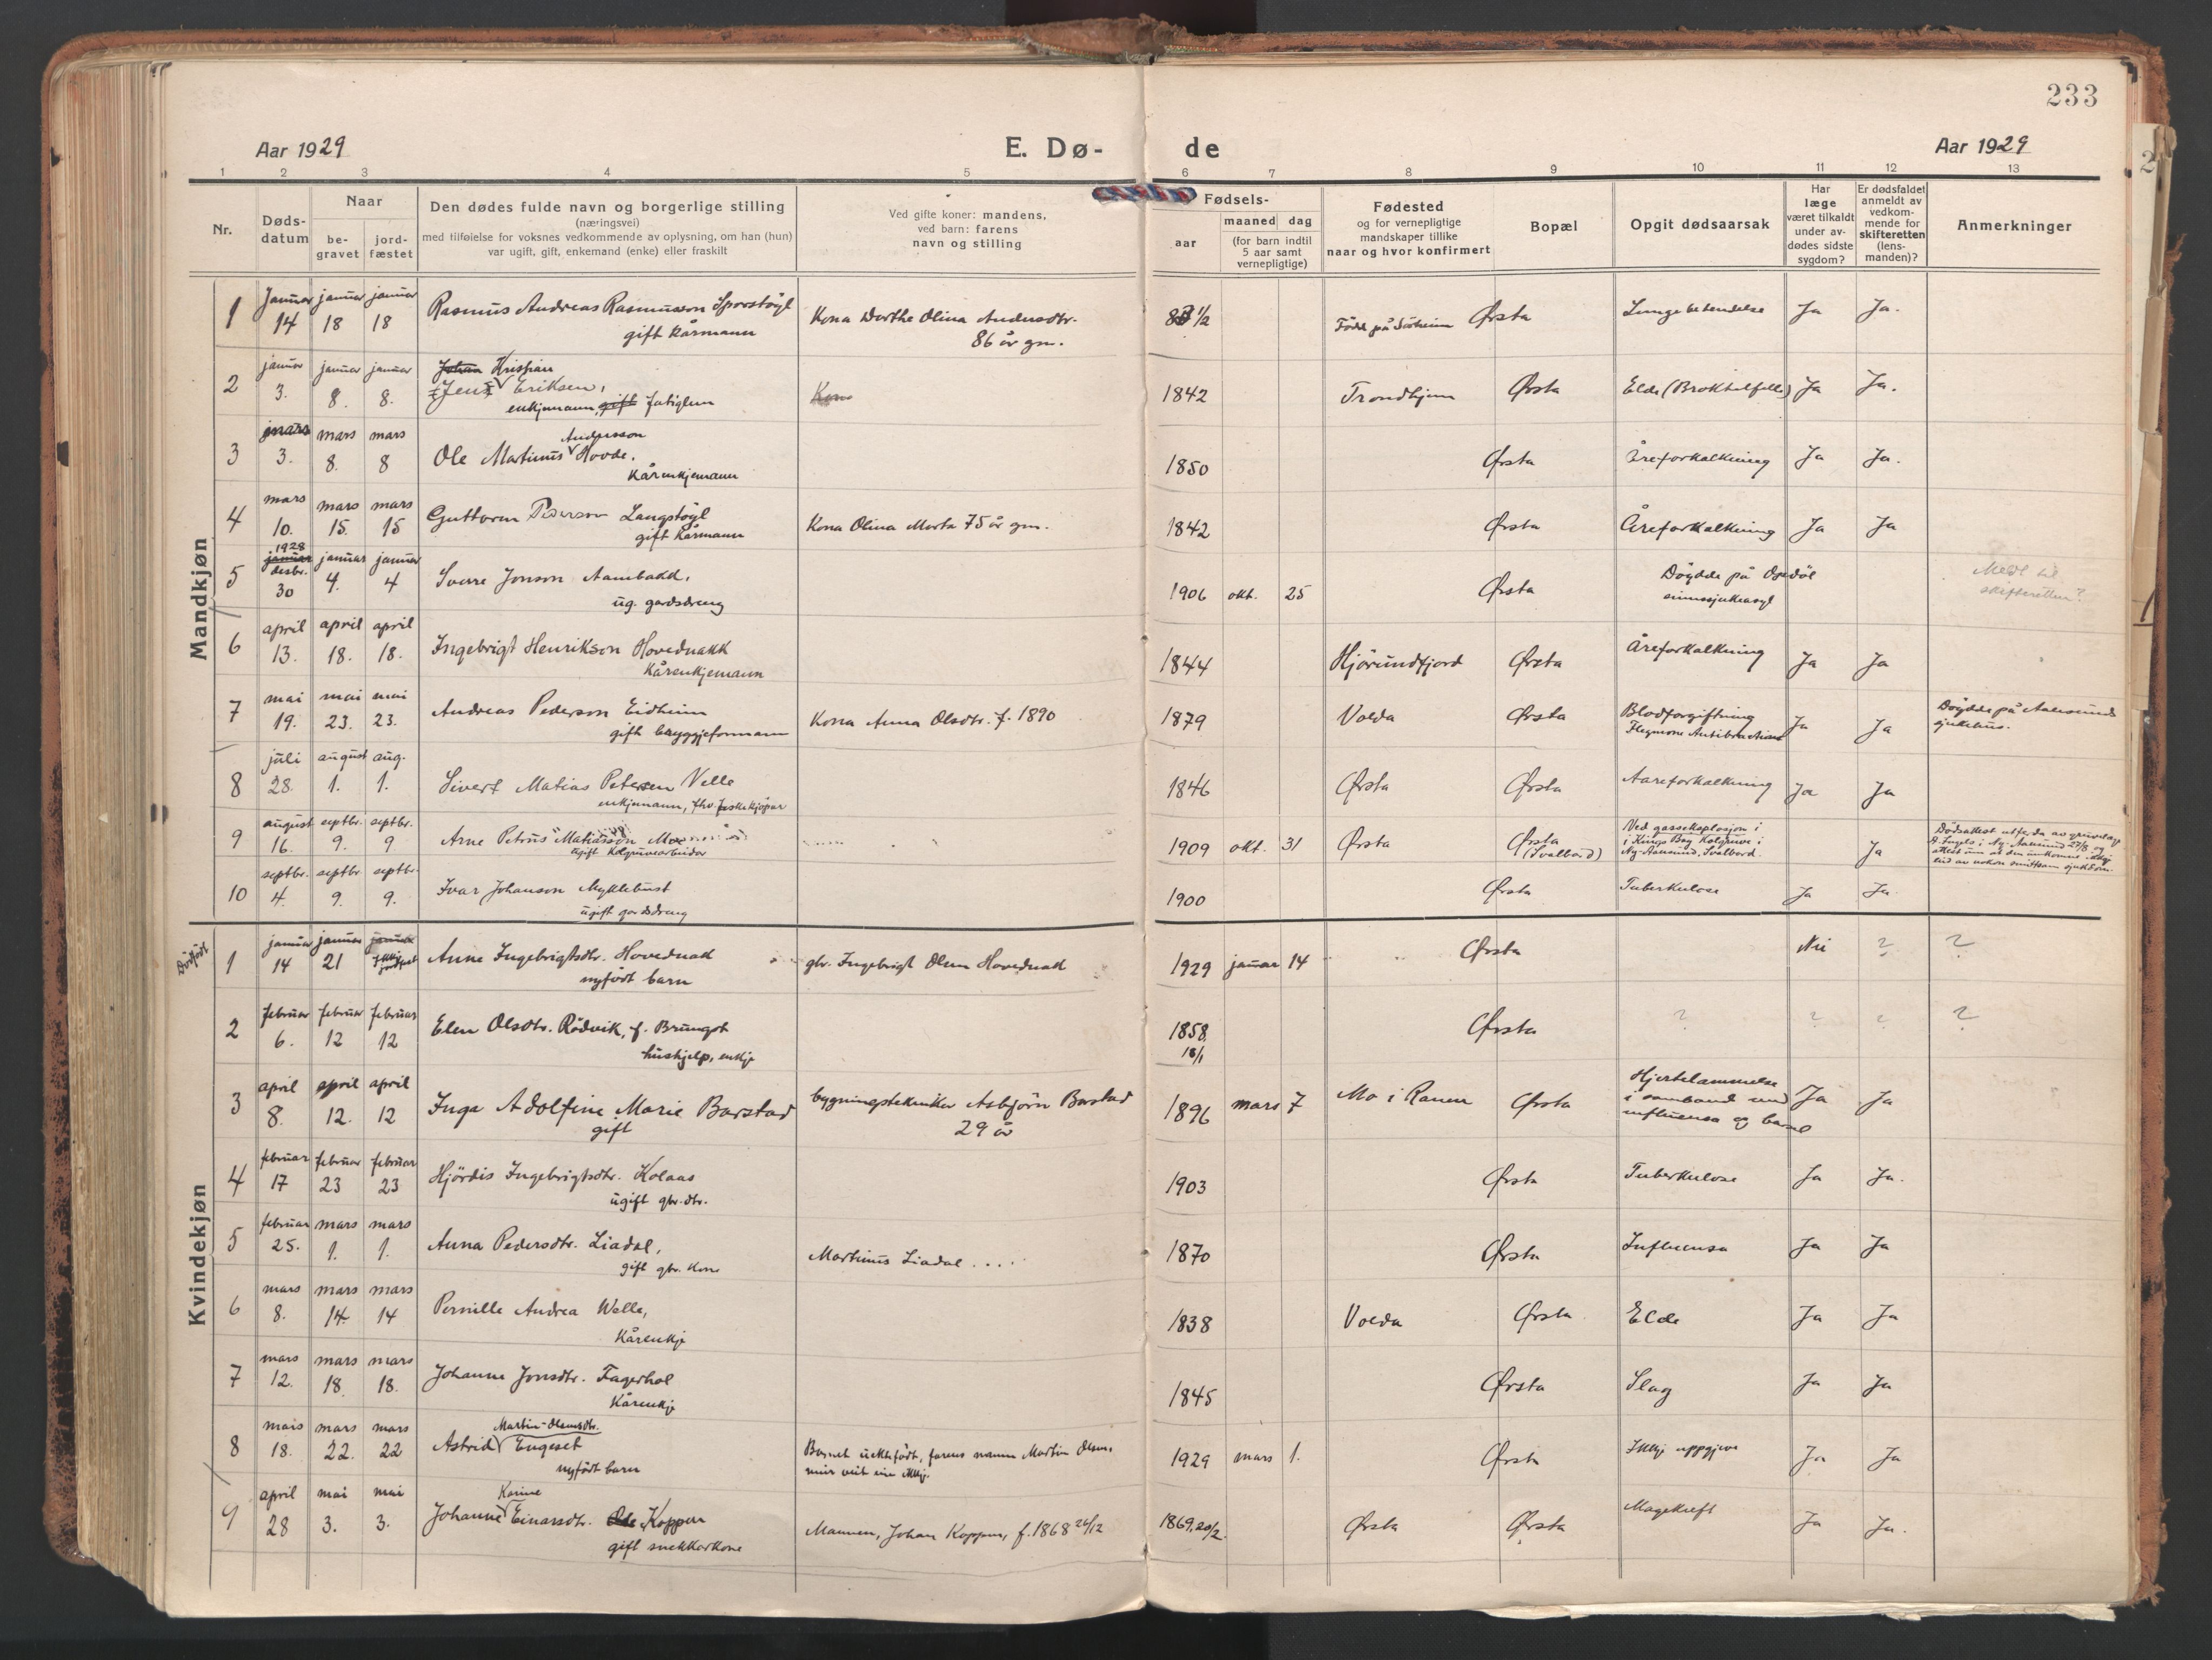 233
Aar 1929
E. Dø-
de
Aar 1929
1 2 3 4 5 6 7 8 9 10 11 12 13
Nr.
Døds-
datum
Naar
be-
gravet
jord-
fæstet
Den dødes fulde navn og borgerlige stilling
(næringsvei)
med tilføielse for voksnes vedkommende av oplysning, om han (hun)
var ugift, gift, enkemand (enke) eller fraskilt
Ved gifte koner: mandens,
ved barn: farens
navn og stilling
Fødsels-
aar
maaned dag
(for barn indtil
5 aar samt
vernepligtige)
Fødested
og for vernepligtige
mandskaper tillike
naar og hvor konfirmert
Bopæl
Opgit dødsaarsak
Har
læge
været tilkaldt
under av-
dødes sidste
sygdom?
Er dødsfaldet
anmeldt av
vedkom-
mende for
skifteretten
(lens-
manden)?
Anmerkninger
Mandkjøn
1 Januar 14 januar 18 januar 18 Rasmus Andreas Rasmusson Sporstøyl
gift kårmann
Kona Dorthe Olina Andersdtr.
86 år gm.
1/2 Född på Ørsta Ja Ja.
2 januar 3. januar 8. januar 8. Johan Kristian
Jens Eriksen,
enkjemann, gift fatiglem
Kona
1842 Trondhjem Ørsta Elde Ja Ja.
3 mars 3. mars 8. mars 8 Andersson
Ole Martinus Hovde,
Kårenkjemann
1850 Ørsta Åreforkalkning Ja Ja.
4 mars 10. mars 15. mars 15 Guttorm Pederson Langstøyl
gift kårmann
Kona Olina Marta 75 år gm.
1842 Ørsta Åreforkalkning Ja Ja
5 1928 januar desbr. 30 januar 4. januar 4 Sverre Jonson Aambakk,
ug. gardsdreng
1906 okt. 25 Ørsta Döydde på Opdöl
sinnssjukeasyl
Meldt til
skifteretten?
6 april 13. april 18. april 18. Ingebrigt Henrikson Hovednakk
Kårenkjemann
1844 Hjörundfjord Ørsta Åreforkalkning Ja Ja
7 mai 19. mai 23. mai 23. Andreas Pederson Eidheim
gift byggjeformann
Kona Anna Olsdtr. f. 1890
1879 Volda Ørsta Blodforgiftning
Flegmone Ja Ja
Döydde på Aalesunds
sjukehus.
8 juli 28. august 1. aug. 1. Sivert Matias Petersen Velle
enkjemann, fhv. fiskekjøpar
1846 Ørsta Ørsta Aareforkalkning Ja Ja
9 august 16. septbr. 9. septbr. 9 Arne Petrus Matiasson Moe
ugift Kolgruvearbeidar
1909 okt. 31 Ørsta Ørsta
(Svalbard)
Ved gasseksplosjon i
i Kings Bay Kolgruve i
Ny-Aalesund, Svalbard.
Ja
Dödsattest utferda av
i Ny-Aalesund 27/8 og
attest um at den
av nokon smittsam sjukdom.
10 septbr. 4. septbr 9. septbr. 9. Ivar Johanson Myklebust
ugift gardsdreng
1900 Ørsta Tuberkulose Ja Ja
Kvindekjøn
Dødfødt
1 januar 14 januar 21 januar Ikkje jordfest Anne Ingebrigtsdtr. Hovednak
nyfödt barn
gbr. Ingebrigt Olsen Hovednakk
1929 januar 14 Ørsta Nei ? ?
2 februar 6. februar 12 februar 12 Elen Olsdtr. Rödvik, f. Brungot
hushjelp, enkje
1858
18/1 Ørsta ? ? ? ?
3 april 8. april 12. april 12 Inga Adolfine Marie Barstad
gift
bygningstekniker Asbjörn Barstad
29 år
1896 mars 7 Mo i Ranen Ørsta Hjertelammelse
i samband med
influensa og barsel
Ja Ja
4 februar 17 februar 23 februar 23 Hjördis Ingebrigtsdtr. Kolaas
ugift gbr. dtr.
1903 Ørsta Tuberkulose Ja Ja.
5 februar 25. mars 1. mars 1. Anna Pedersdtr. Liadal,
gift gbr. kone
Martinus Liadal ....
1870 Ørsta Influensa Ja Ja
6 mars 8. mars 14. mars 14 Pernille Andrea Welle,
Kårenkje
1838 Volda Ørsta Elde Ja Ja
7 mars 12. mars 18. mars 18. Johanne Jonsdtr. Fagerhol
Kårenkje
1845 Ørsta Slag Ja Ja
8 mars 18. mars 22. mars 22 Martin-Olsensdtr.
Astrid Engeset
nyfödt barn
Barnet uektefödt, farens namn Martin Olsen,
meir veit ein ikkje.
1929 mars 1. Ørsta Ikkje uppgjeve Ja Ja
9 april 28 mai 3. mai 3. Karine
Johanne Einarsdtr. Koppen
gift snekkarkone
Mannen, Johan Koppen, f. 1868 26/12
1869, 20/2. Ørsta Ørsta Magekreft Ja Ja.